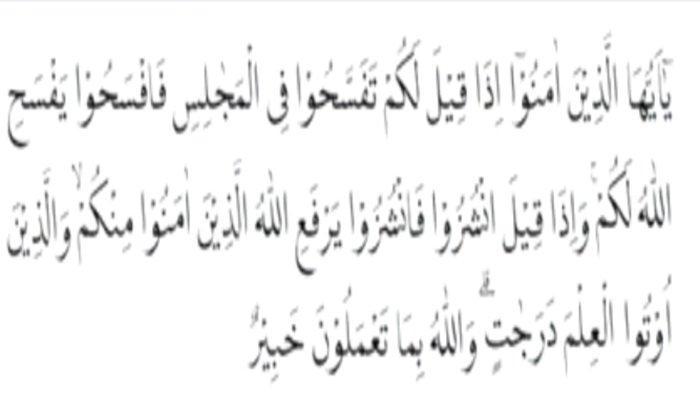 يٰٓاَيُّهَا الَّذِيْنَ اٰمَنُوْٓا اِذَا قِيْلَ لَكُمْ تَفَسَّحُوْا فِى الْمَجٰلِسِ فَافْسَحُوْا يَفْسَحِ
اللّٰهُ لَكُمْۚ وَاِذَا قِيْلَ انْشُزُوْا فَانْشُزُوْا يَرْفَعِ اللّٰهُ الَّذِيْنَ اٰمَنُوْا مِنْكُمْۙ وَالَّذِيْنَ
اُوْتُوا الْعِلْمَ دَرَجٰتٍۗ وَاللّٰهُ بِمَا تَعْمَلُوْنَ خَبِيْرٌ